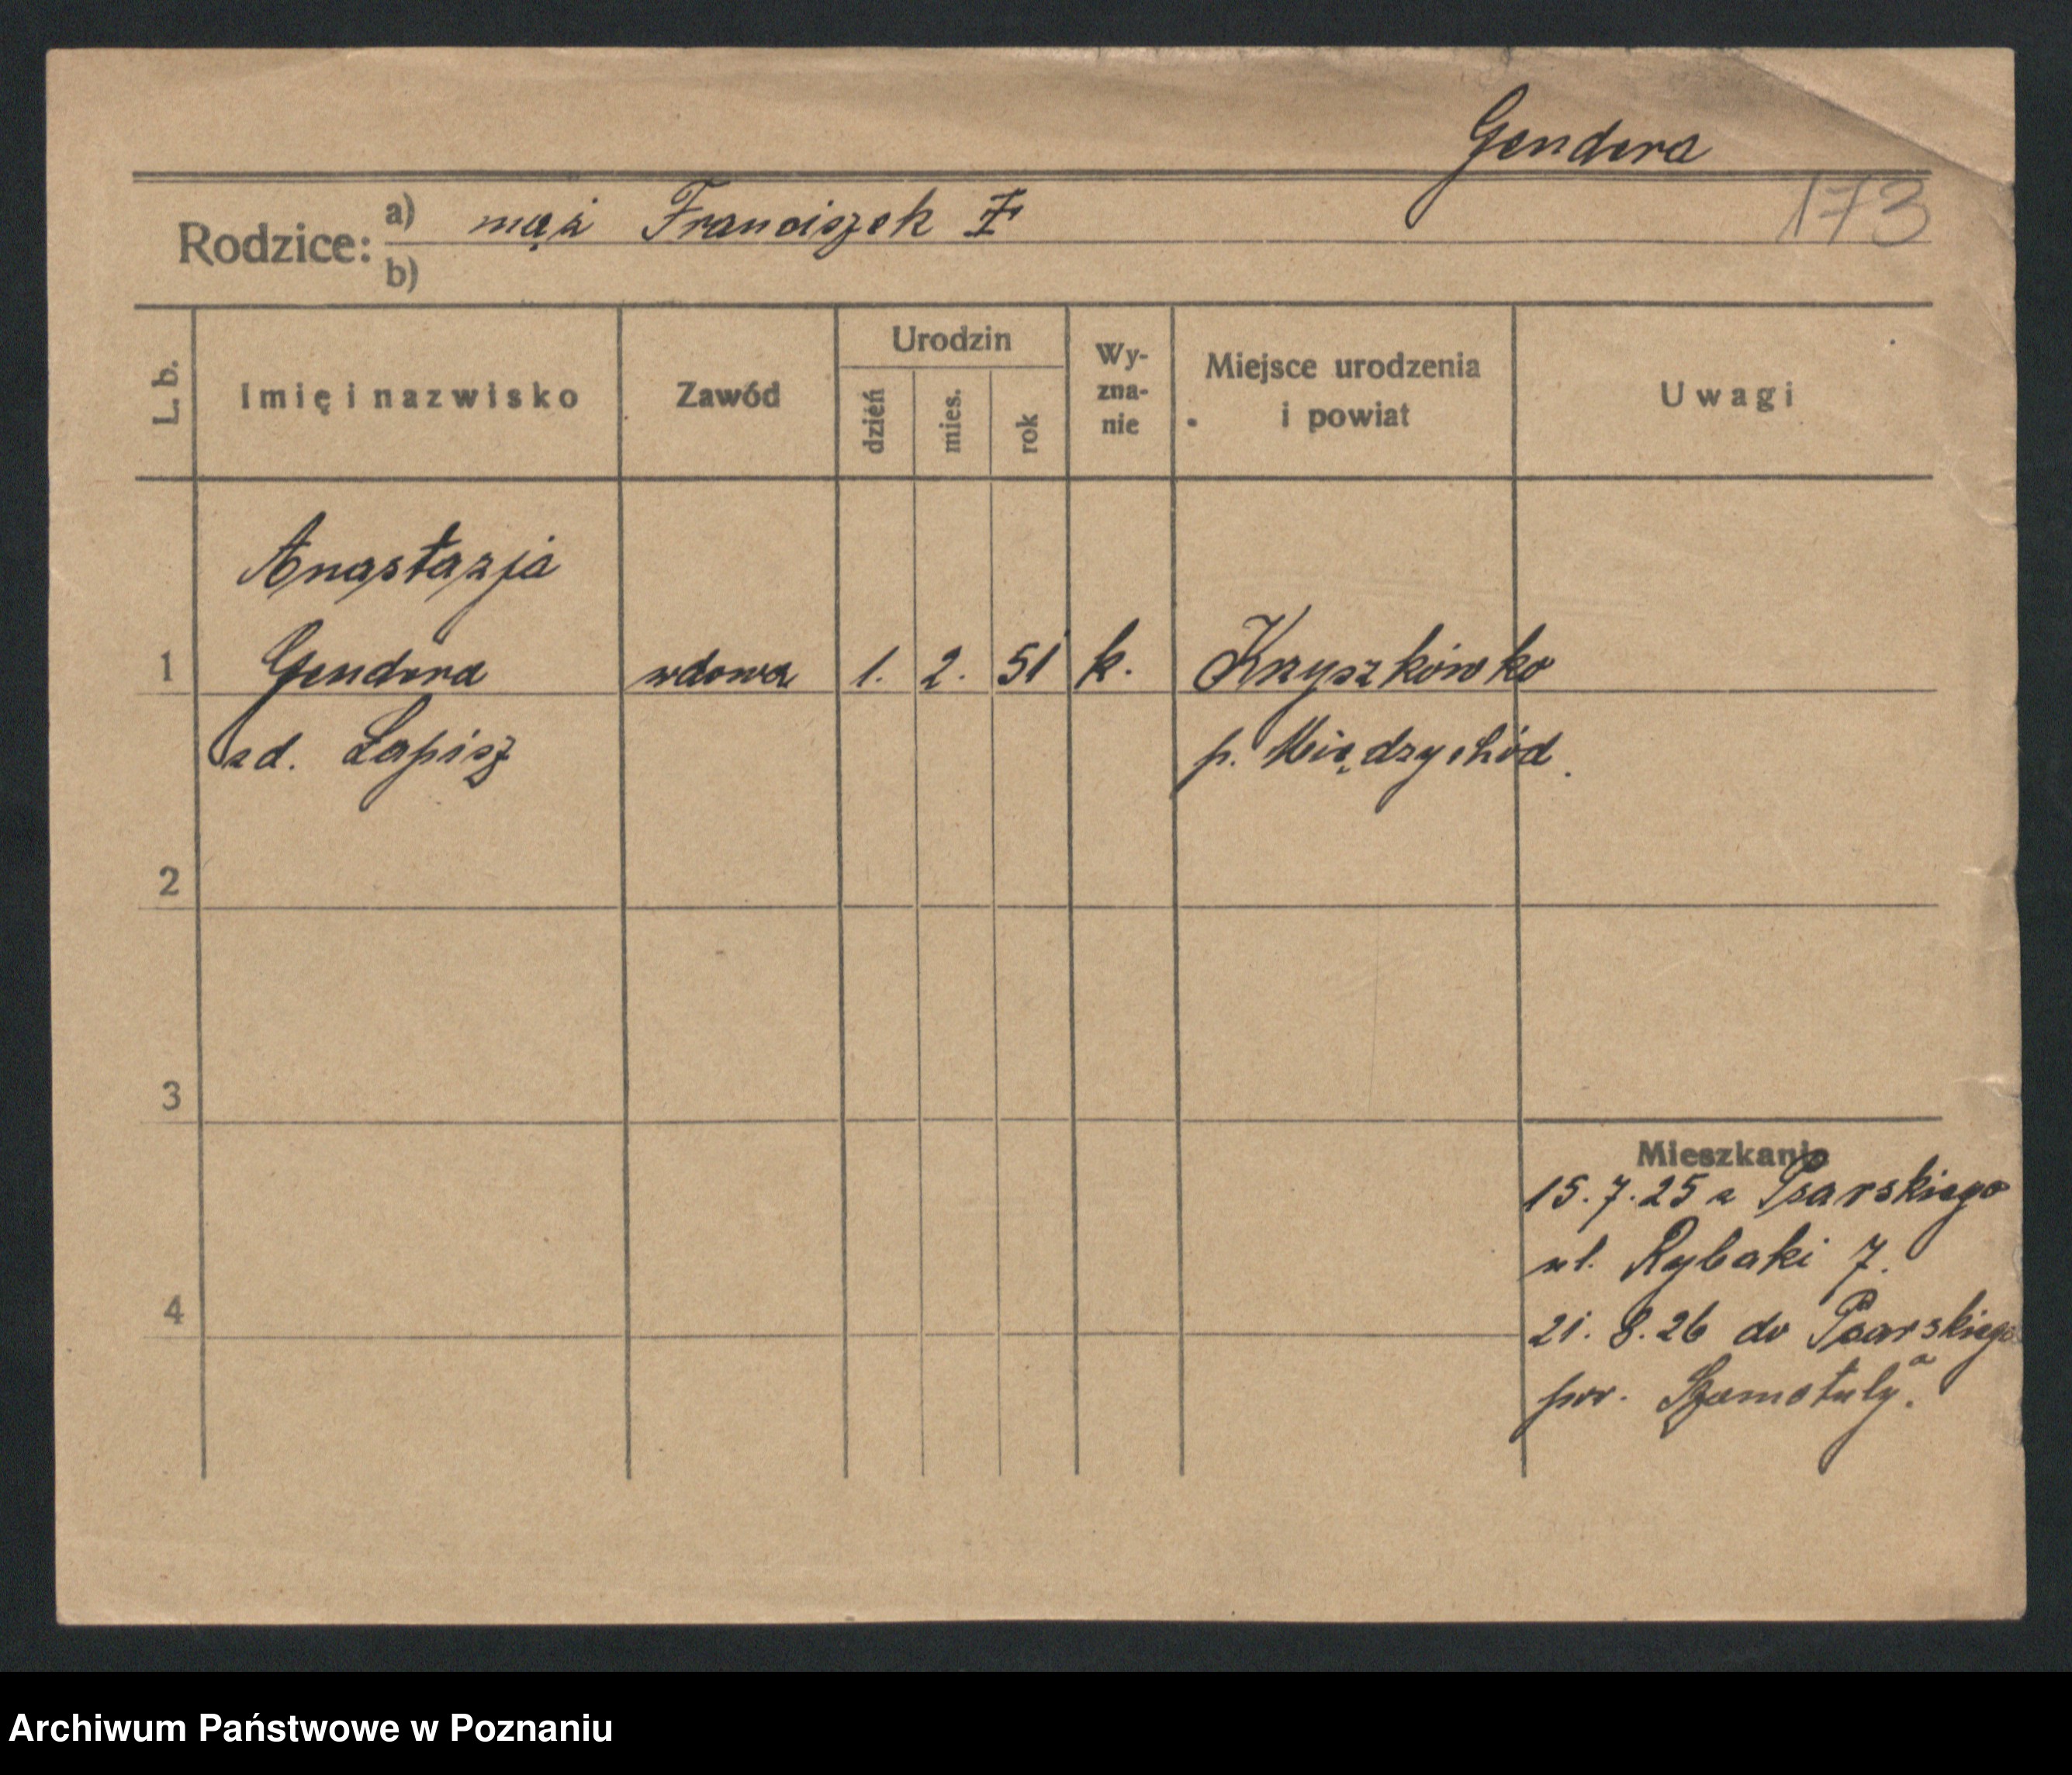 Gendera
173
Rodzice: a) mąż Franciszek
b)
L. b. Imię i nazwisko Zawód Urodzin dzień mies. rok Wy-zna-nie Miejsce urodzenia i powiat Uwagi
Anastazja
1 Gendera wdowa 1. 2. 51 k. Krzyszkówko
zd. Lapisz p. Międzychód.
2
3
Mieszkanie
15.7.25 z Psarskiego
ul. Rybaki 7.
4 21. 8. 26 do Psarskiego
pow. Szamotuły.
Archiwum Państwowe w Poznaniu